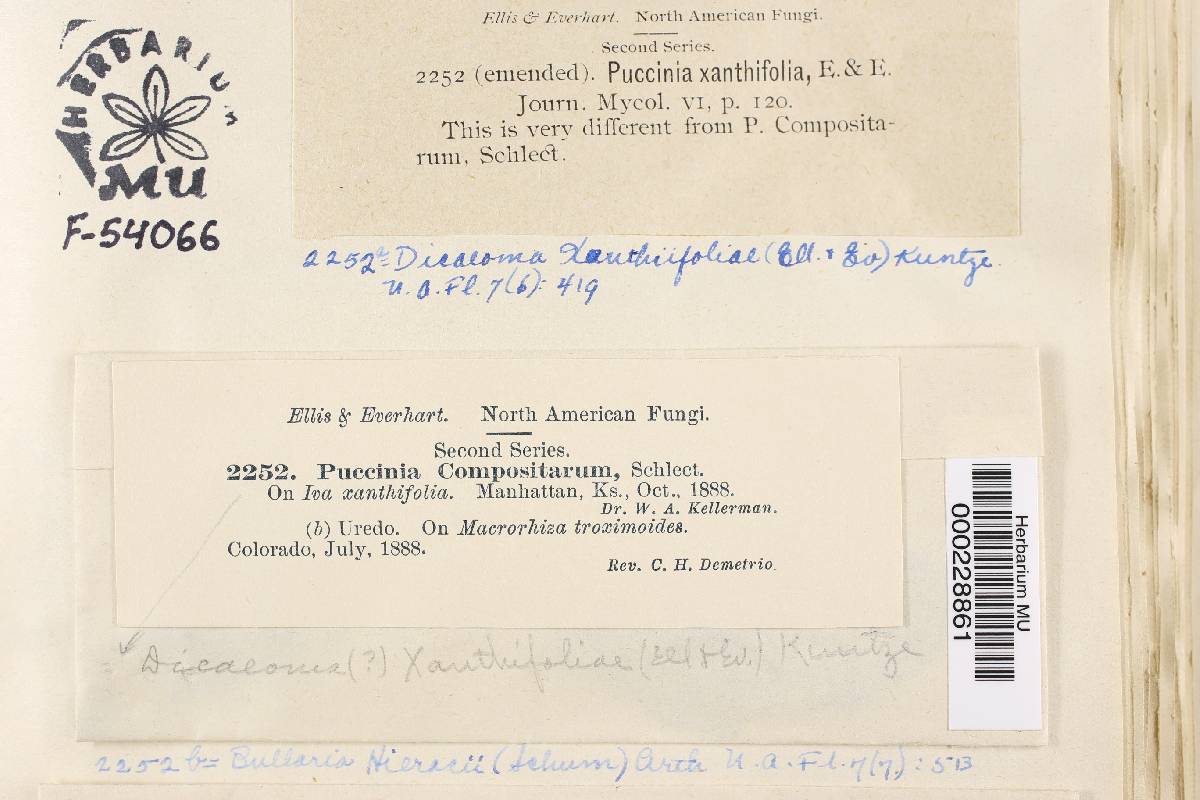 Ellis & Everhart. North American Fungi.
Second Series.
2252 (emended). Puccinia xanthifolia, E. & E.
Journ. Mycol. VI, p. 120.
This is very different from P. Composita-
rum, Schlect.
HERBARIUM
MU
F-54066
2252 = Dicaeoma Xanthiifoliae (Ell. & Ev) Kuntze.
N. A. Fl. 7(6): 419
Ellis & Everhart. North American Fungi.
Second Series.
2252. Puccinia Compositarum, Schlect.
On Iva xanthifolia. Manhattan, Ks., Oct., 1888.
Dr. W. A. Kellerman.
(b) Uredo. On Macrorhiza troximoides.
Colorado, July, 1888.
Rev. C. H. Demetrio.
Herbarium MU
000228861
= Dicaeoma (?) Xanthifoliae (Ell & Ev.) Kuntze
2252 b = Bullaria Hieracii (Schum) Arth N. A. Fl. 7(7): 513